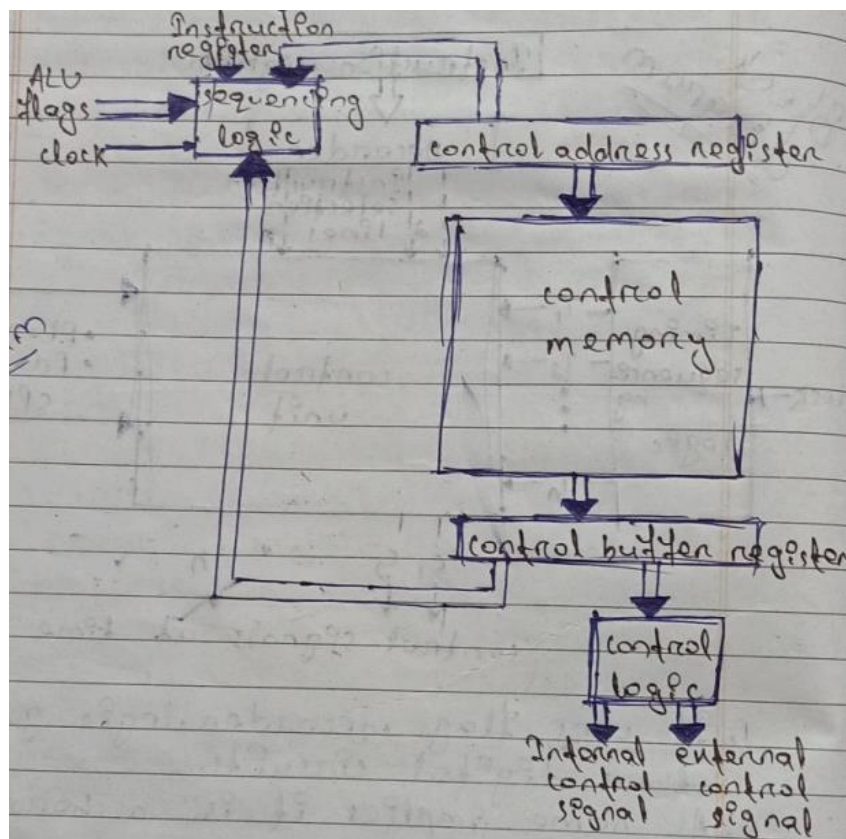 Instruction
register
ALU
flags
clock
sequencing
logic
control address register
control
memory
control buffer register
control
logic
Internal
control
signal
external
control
signal